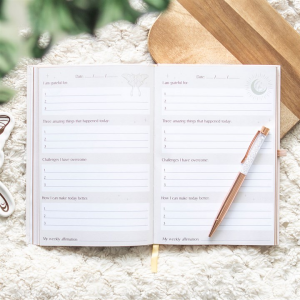 Date
I am grateful for:
1.
2.
3.
Three amazing things that happened today:
1.
2.
3.
Challenges I have overcome:
1.
2.
3.
How I can make today better:
1.
2.
3.
My weekly affirmation
Date
I am grateful for:
1.
2.
3.
Three amazing things that happened today:
1.
2.
3.
Challenges I have overcome:
1.
2.
3.
How I can make today better:
1.
2.
3.
My weekly affirmation